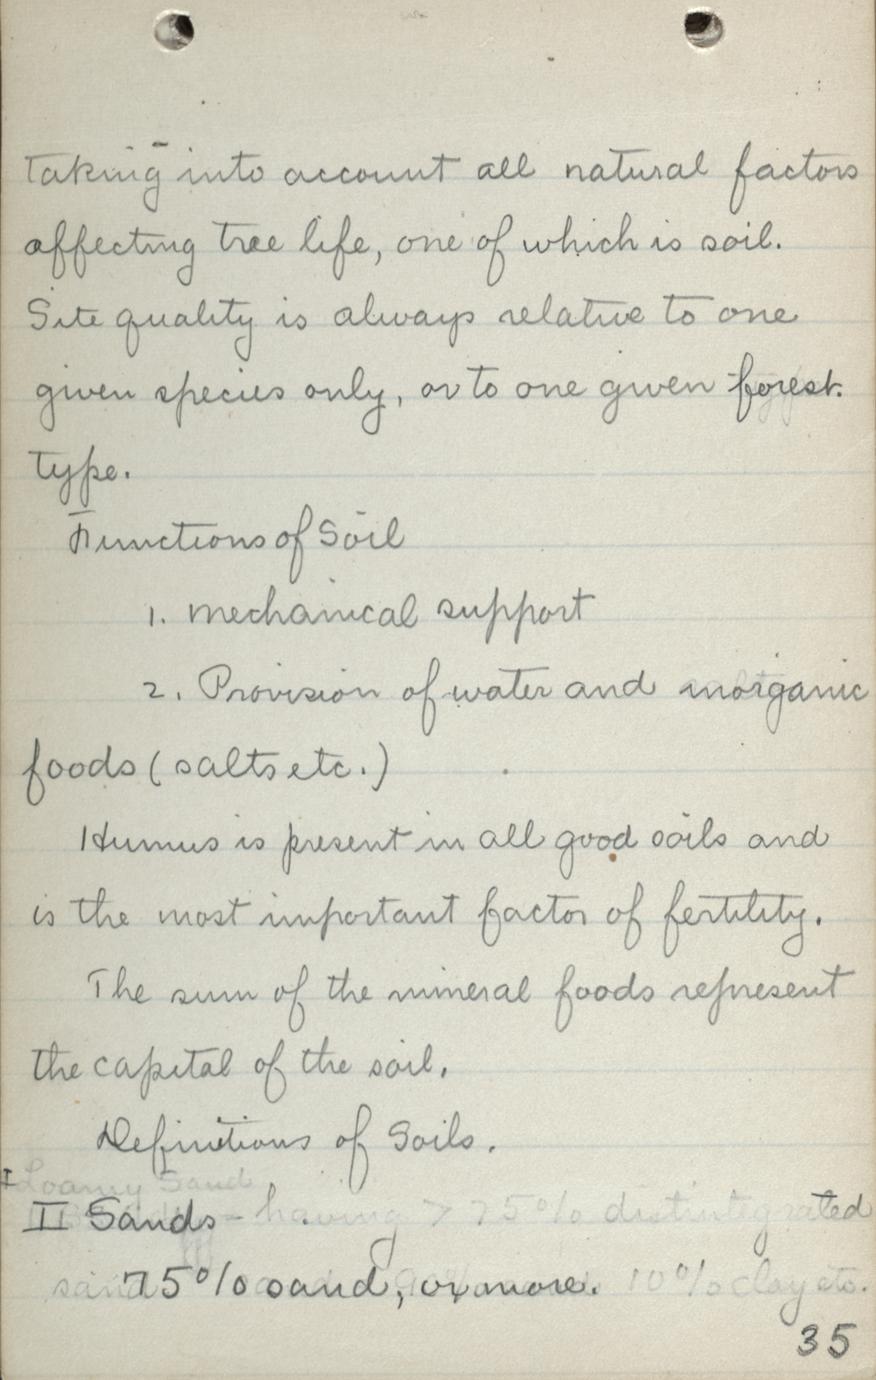 taking into account all natural factors
affecting tree life, one of which is soil.
Site quality is always relative to one
given species only, or to one given forest
type.
Functions of Soil
1. Mechanical support
2. Provision of water and inorganic
foods (salts etc.)
Humus is present in all good soils and
is the most important factor of fertility.
The sum of the mineral foods represent
the capital of the soil.
Definitions of Soils.
I Loamy Sand
II Sands - having > 75% distintegrated
75% sand, or more. 10% clay etc.
35